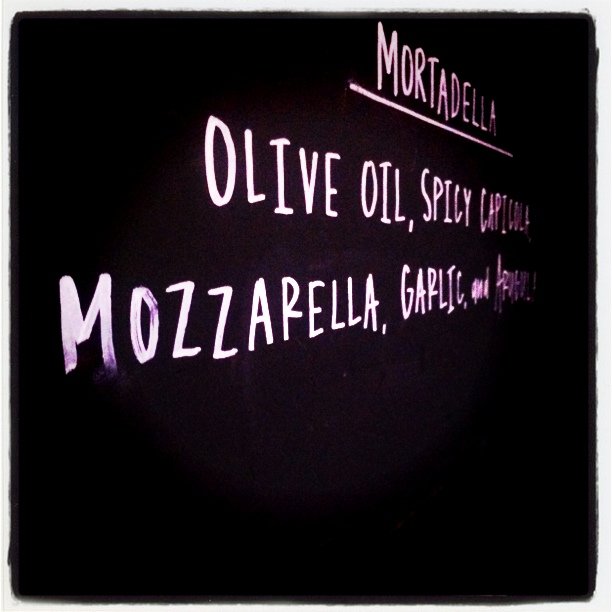 MORTADELLA
OLIVE OIL, SPICY CAPICOLA,
MOZZARELLA, GARLIC, and ARUGULA